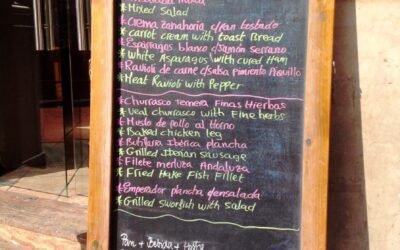 Mixta
* Mixed Salad
* Crema Zanahoria c/pan tostado
* carrot cream with toast Bread
* Esparragos blanco c/Jamón Serrano
* White Asparagus with cured Ham
* Ravioli de carne c/salsa pimiento Piquillo
* Meat Ravioli with Pepper
* Churrasco Ternera Finas Hierbas
* Veal churrasco with Fine herbs
* Muslo de pollo al Horno
* Baked chicken leg
* Butifara Ibérica plancha
* Grilled Iberian Sausage
* Filete merluza Andaluza
* Fried Hake Fish Fillet
* Emperador plancha c/ensalada
* Grilled Swordfish with salad
Pan + Bebida +